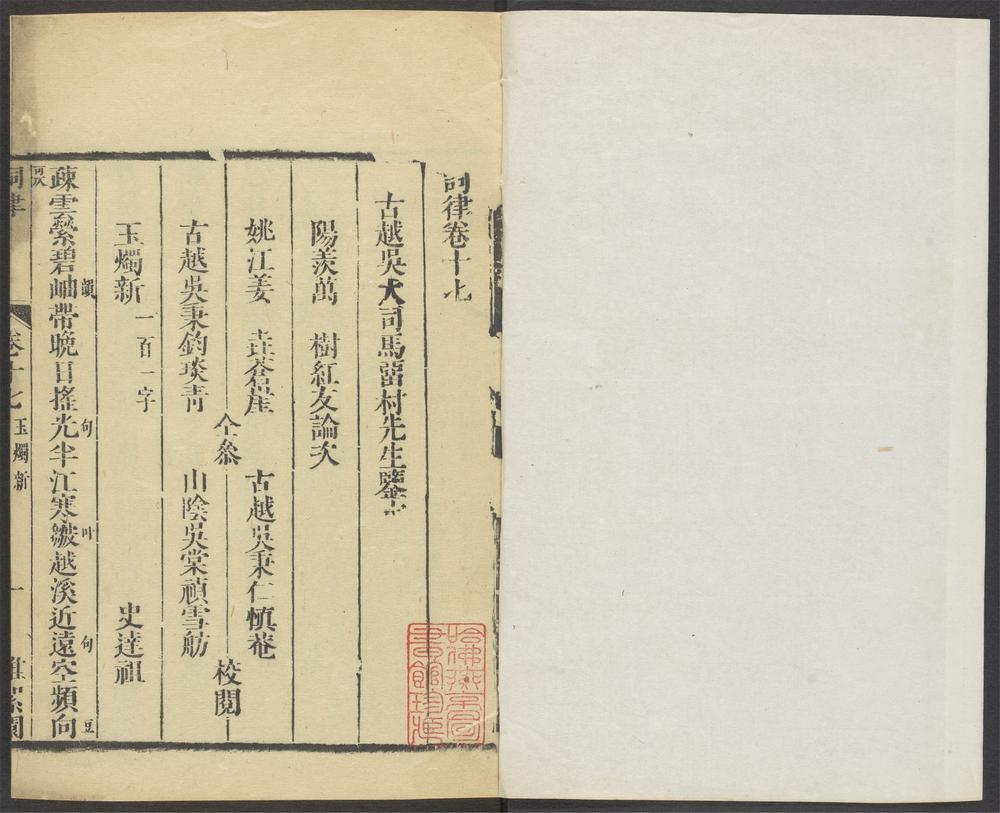 詞律卷十七
古越吳大司馬留村先生鑒定
陽羨萬 樹紅友論次
姚江姜 垚蒼崖 古越吳秉仁慎菴
仝參 校閱
古越吳秉鈞琰青 山陰吳棠禎雪舫
玉燭新 一百一字 史達祖
疎雲縈碧岫韻帶晚日搖光半江寒皺叶越溪近遠句空頻向豆
詞律 卷十七 玉燭新 一 堆絮園
哈佛燕京圖書館珍藏